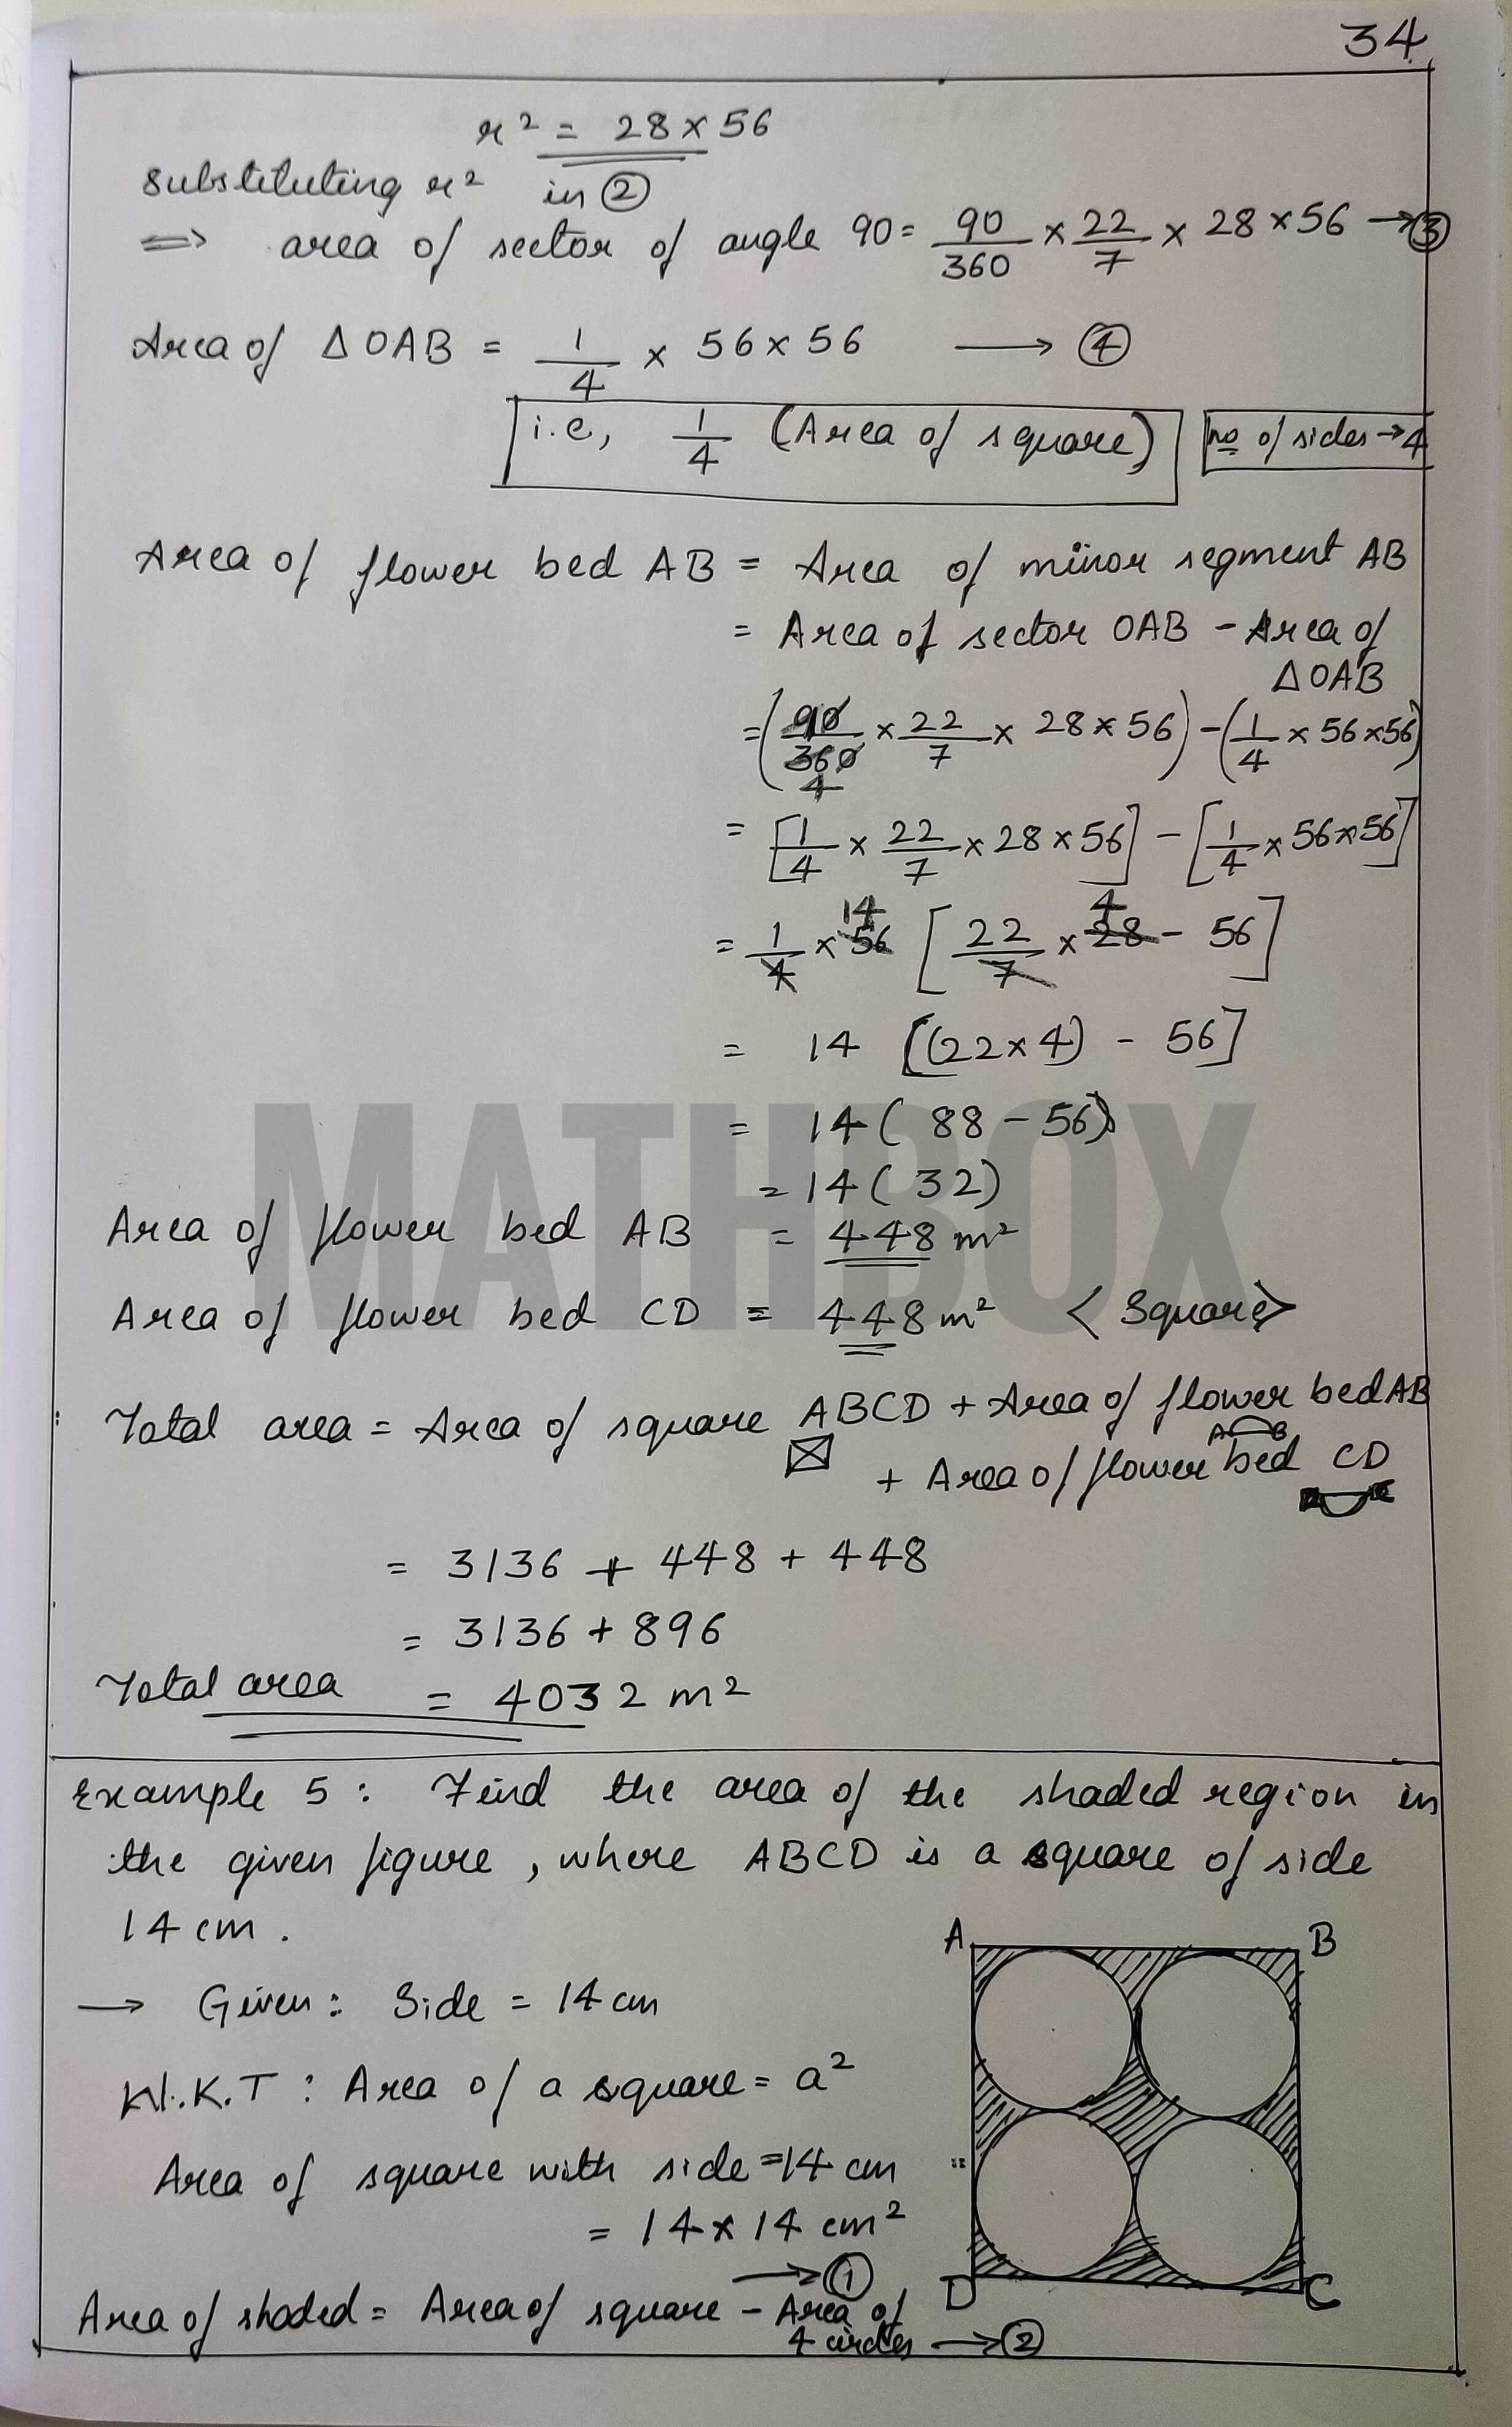 34
r² = 28 × 56
substituting r² in ②
⇒ area of sector of angle 90 = 90/360 × 22/7 × 28 × 56 → ③
Area of △OAB = 1/4 × 56 × 56 ⟶ ④
i.e, 1/4 (Area of square) no of sides → 4
Area of flower bed AB = Area of minor segment AB
= Area of sector OAB - Area of
△OAB
= (90/360 × 22/7 × 28 × 56) - (1/4 × 56 × 56)
4
= [1/4 × 22/7 × 28 × 56] - [1/4 × 56 × 56]
14 4
= 1/4 × 56 [22/7 × 28 - 56]
= 14 [(22 × 4) - 56]
= 14 (88 - 56)
= 14 (32)
Area of flower bed AB = 448 m²
Area of flower bed CD = 448 m² <Square>
MATHBOX
Total area = Area of square ABCD + Area of flower bed AB
A B
+ Area of flower bed CD
= 3136 + 448 + 448
= 3136 + 896
Total area = 4032 m²
Example 5 : Find the area of the shaded region in
the given figure, where ABCD is a square of side
14 cm .
A B
→ Given : Side = 14 cm
W.K.T : Area of a square = a²
Area of square with side = 14 cm
= 14 × 14 cm²
→ ①
D C
Area of shaded = Area of square - Area of
4 circles → ②